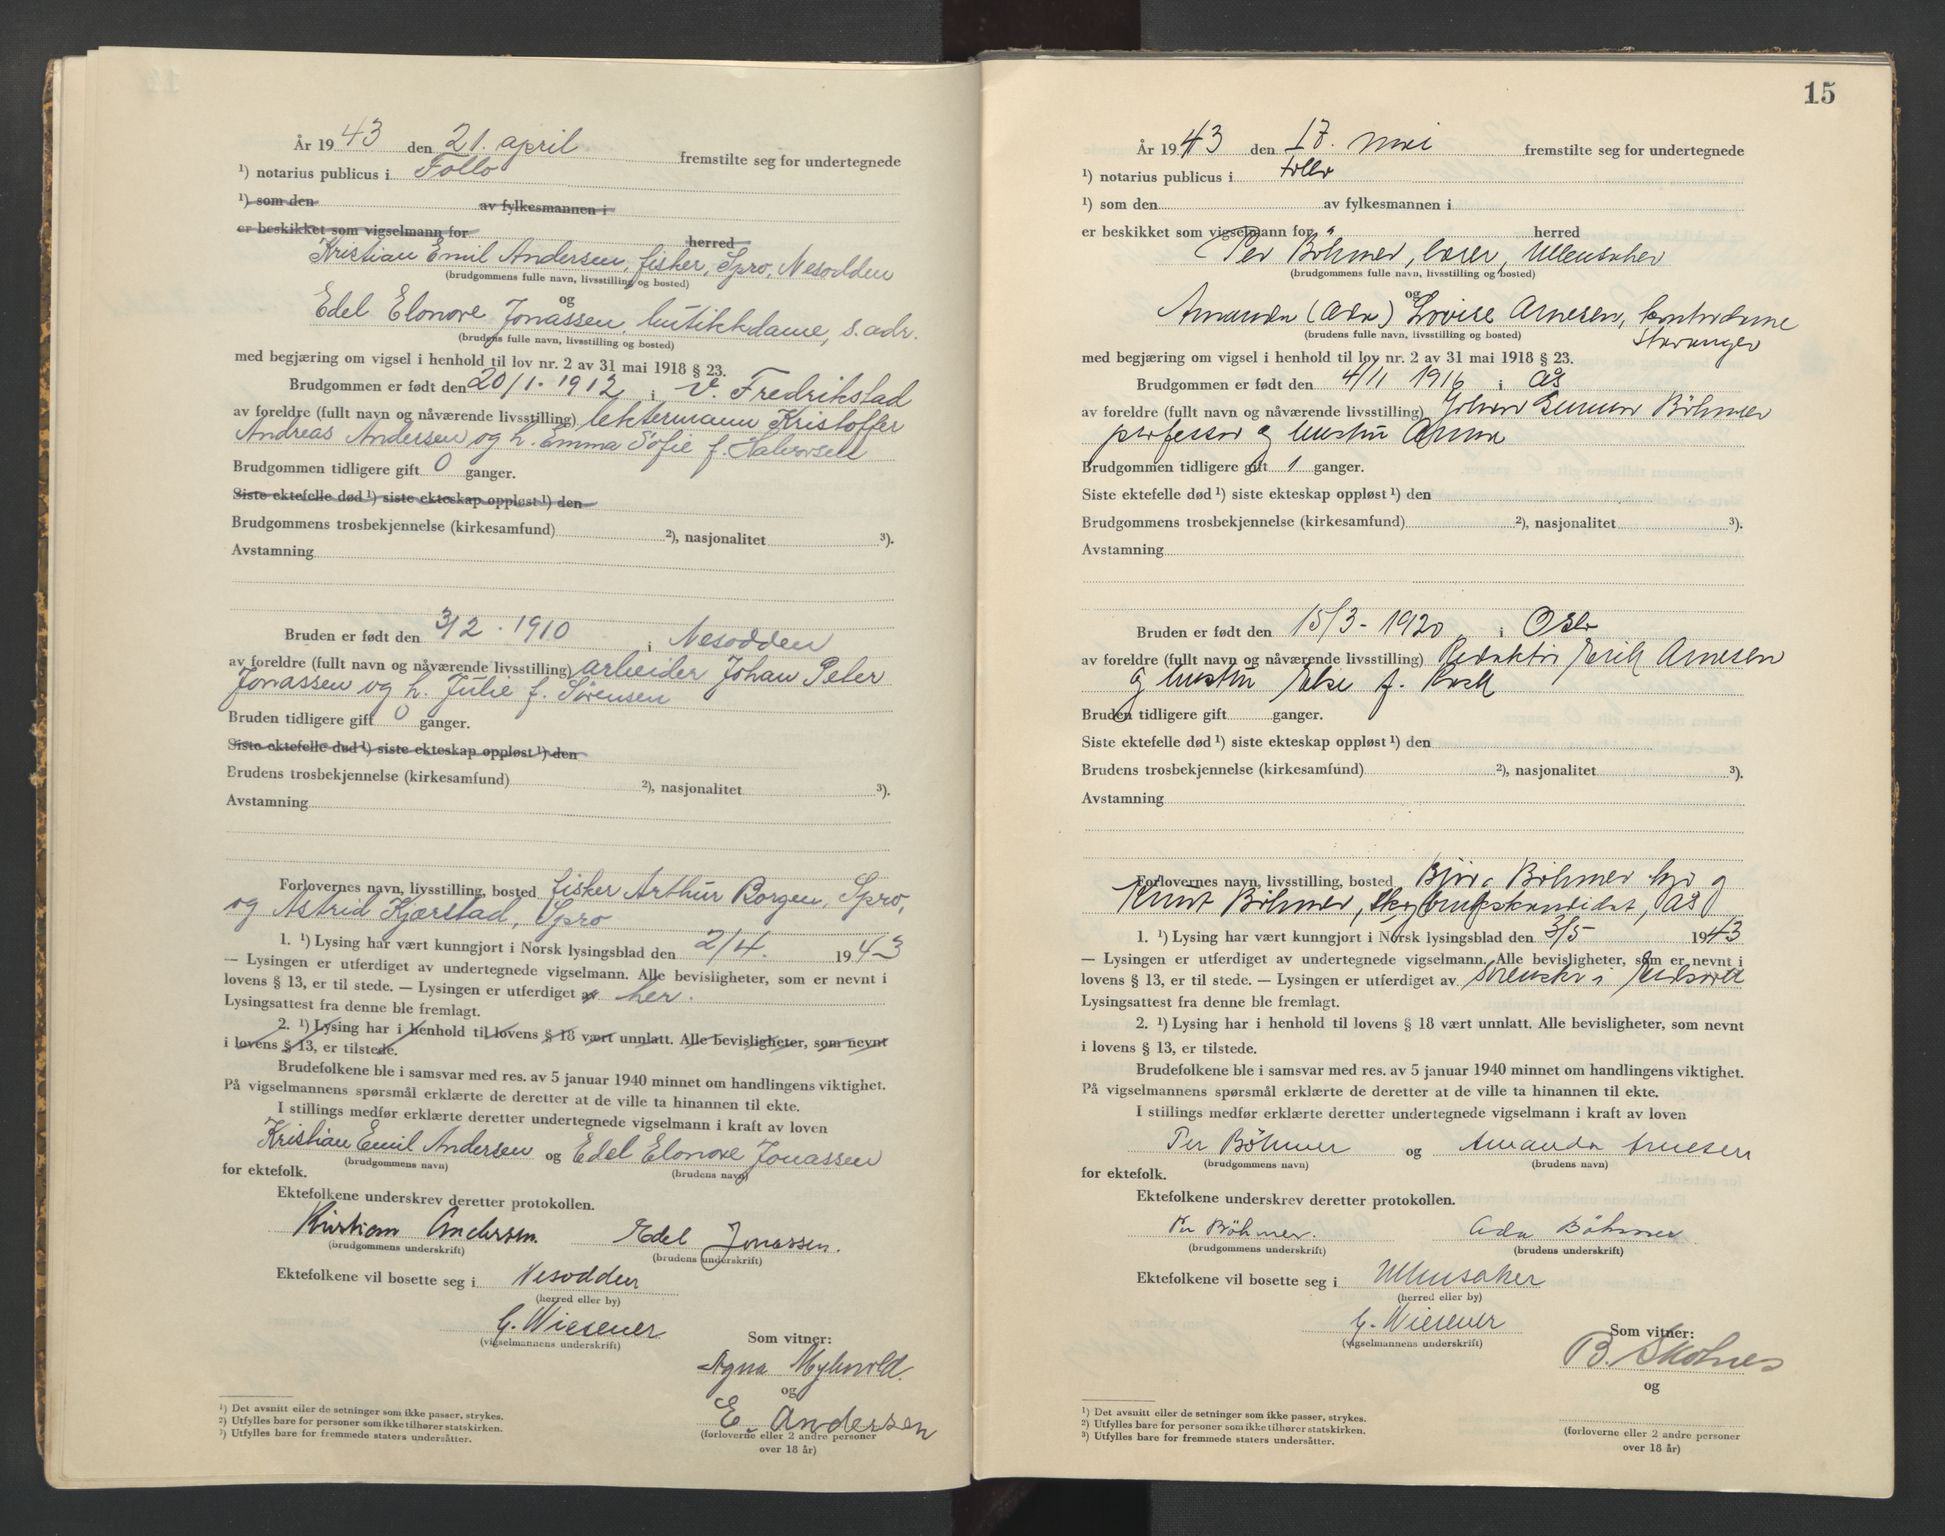 År 1943 den 21. april fremstilte seg for undertegnede
¹) notarius publicus i Follo
¹) som den av fylkesmannen i
er beskikket som vigselmann for herred
Kristian Emil Andersen, fisker, Spro, Nesodden
(brudgommens fulle navn, livsstilling og bosted)
og
Edel Elonore Jonassen, butikkdame, s. adr.
(brudens fulle navn, livsstilling og bosted)
med begjæring om vigsel i henhold til lov nr. 2 av 31 mai 1918 § 23.
Brudgommen er født den 20/1. 1912 i v. Fredrikstad
av foreldre (fullt navn og nåværende livsstilling) lektermann Kristoffer
Andreas Andersen og h. Emma Sofie f. Halvorsen
Brudgommen tidligere gift 0 ganger.
Siste ektefelle død ¹) siste ekteskap oppløst ¹) den
Brudgommens trosbekjennelse (kirkesamfund) ²), nasjonalitet ³).
Avstamning
Bruden er født den 3/2. 1910 i Nesodden
av foreldre (fullt navn og nåværende livsstilling) arbeider Johan Peter
Jonassen og h. Julie f. Sørensen
Bruden tidligere gift 0 ganger.
Siste ektefelle død ¹) siste ekteskap oppløst ¹) den
Brudens trosbekjennelse (kirkesamfund) ²), nasjonalitet ³).
Avstamning
Forlovernes navn, livsstilling, bosted fisker Arthur Borgen, Spro,
og Astrid Kjærstad, Spro
1. ¹) Lysing har vært kunngjort i Norsk lysingsblad den 2/4. 1943
— Lysingen er utferdiget av undertegnede vigselmann. Alle bevisligheter, som er nevnt i
lovens § 13, er til stede. — Lysingen er utferdiget av her.
Lysingsattest fra denne ble fremlagt.
2. ¹) Lysing har i henhold til lovens § 18 vært unnlatt. Alle bevisligheter, som nevnt
i lovens § 13, er tilstede.
Brudefolkene ble i samsvar med res. av 5 januar 1940 minnet om handlingens viktighet.
På vigselmannens spørsmål erklærte de deretter at de ville ta hinannen til ekte.
I stillings medfør erklærte deretter undertegnede vigselmann i kraft av loven
Kristian Emil Andersen og Edel Elonore Jonassen
(brudgommens navn) (brudens navn)
for ektefolk.
Ektefolkene underskrev deretter protokollen.
Kristian Andersen. Edel Jonassen.
(brudgommens underskrift) (brudens underskrift)
Ektefolkene vil bosette seg i Nesodden
(herred eller by)
G. Wiesener
(vigselmannens underskrift)
Som vitner:
Agna Myhrvold.
og
E. Andersen
(forloverne eller 2 andre personer
over 18 år)
¹) Det avsnitt eller de setninger som ikke passer, strykes.
²) Utfylles bare for personer som ikke tilhører statskirken.
³) Utfylles bare for fremmede staters undersåtter.
15
År 1943 den 17. mai fremstilte seg for undertegnede
¹) notarius publicus i Follo
¹) som den av fylkesmannen i
er beskikket som vigselmann for herred
Per Böhmer, lærer, Ullensaker
(brudgommens fulle navn, livsstilling og bosted)
og
Amanda (Ada) Lovise Arnesen, kontordame
Stavanger
(brudens fulle navn, livsstilling og bosted)
med begjæring om vigsel i henhold til lov nr. 2 av 31 mai 1918 § 23.
Brudgommen er født den 4/11 1916 i Ås
av foreldre (fullt navn og nåværende livsstilling) Johan Gunnar Böhmer
professor og hustru Anna
Brudgommen tidligere gift 1 ganger.
Siste ektefelle død ¹) siste ekteskap oppløst ¹) den
Brudgommens trosbekjennelse (kirkesamfund) ²), nasjonalitet ³).
Avstamning
Bruden er født den 15/3 - 1920 i Oslo
av foreldre (fullt navn og nåværende livsstilling) Redaktør Erik Arnesen
og hustru Else f.
Bruden tidligere gift ganger.
Siste ektefelle død ¹) siste ekteskap oppløst ¹) den
Brudens trosbekjennelse (kirkesamfund) ²), nasjonalitet ³).
Avstamning
Forlovernes navn, livsstilling, bosted Böhmer og
Knut Böhmer, skogbrukskandidat, Ås
1. ¹) Lysing har vært kunngjort i Norsk lysingsblad den 3/5 1943
— Lysingen er utferdiget av undertegnede vigselmann. Alle bevisligheter, som er nevnt i
lovens § 13, er til stede. — Lysingen er utferdiget av Sorenskr i Eidsvoll
Lysingsattest fra denne ble fremlagt.
2. ¹) Lysing har i henhold til lovens § 18 vært unnlatt. Alle bevisligheter, som nevnt
i lovens § 13, er tilstede.
Brudefolkene ble i samsvar med res. av 5 januar 1940 minnet om handlingens viktighet.
På vigselmannens spørsmål erklærte de deretter at de ville ta hinannen til ekte.
I stillings medfør erklærte deretter undertegnede vigselmann i kraft av loven
Per Böhmer og Amanda Arnesen
(brudgommens navn) (brudens navn)
for ektefolk.
Ektefolkene underskrev deretter protokollen.
Per Böhmer. Ada Böhmer
(brudgommens underskrift) (brudens underskrift)
Ektefolkene vil bosette seg i Ullensaker
(herred eller by)
G. Wiesener
(vigselmannens underskrift)
Som vitner:
B. Skolnes
og
(forloverne eller 2 andre personer
over 18 år)
¹) Det avsnitt eller de setninger som ikke passer, strykes.
²) Utfylles bare for personer som ikke tilhører statskirken.
³) Utfylles bare for fremmede staters undersåtter.